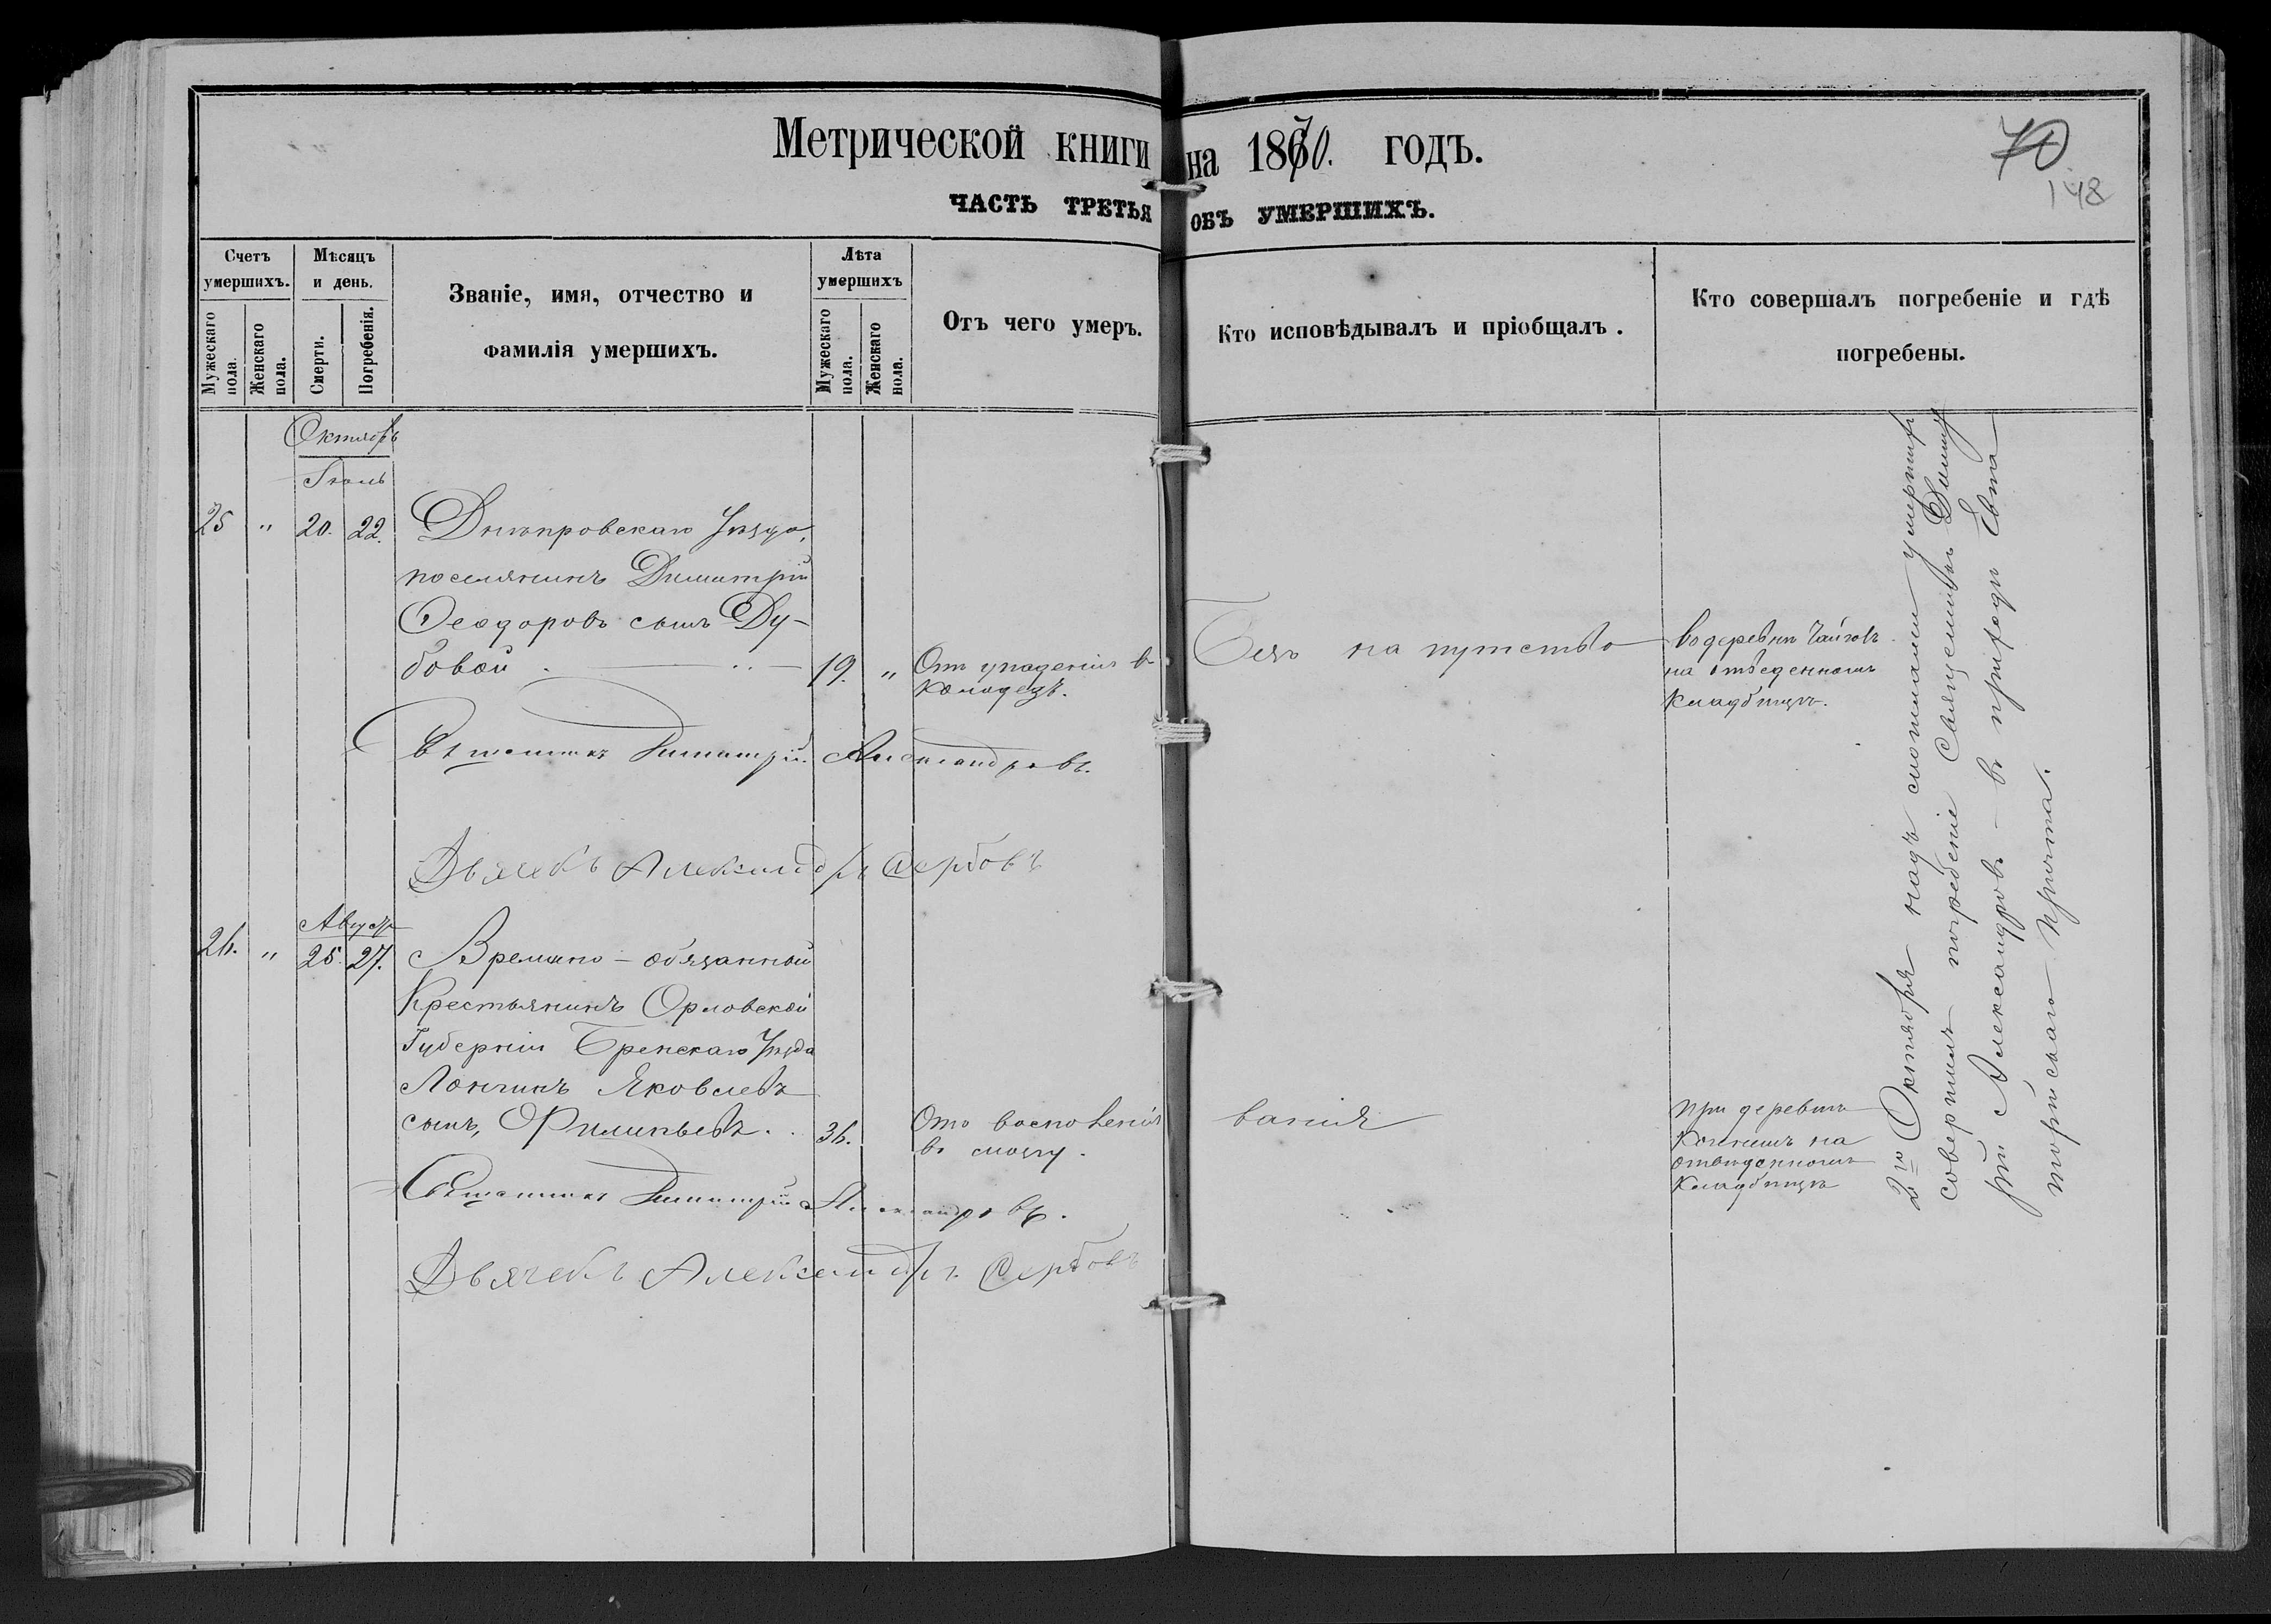 Метрической книги на 1870. годъ.
70
148
ЧАСТЬ ТРЕТЬЯ ОБЪ УМЕРШИХЪ.
Счетъ умершихъ.
Мужескаго пола.
Женскаго пола.
Мѣсяцъ и день.
Смерти.
Погребенія.
Званіе, имя, отчество и
фамилія умершихъ.
Лѣта умершихъ
Мужескаго пола.
Женскаго пола.
Отъ чего умеръ.
Кто исповѣдывалъ и пріобщалъ.
Кто совершалъ погребеніе и гдѣ
погребены.
Октябрь
Іюль
25 " 20. 22. Днѣпровскаго Уѣзда,
поселянинъ Димитрій
Ѳеодоровъ сынъ Ду-
бовой 19. " Отъ упаденія въ
колодезь.
Безъ напутство
Въ деревнѣ
на отведенномъ
кладбищѣ.
Священникъ Димитрій Александровъ.
Дьячекъ Александръ Сербовъ
Августъ
26. " 25. 27. Временно-обязанный
Крестьянинъ Орловской
Губерніи Бренскаго Уѣзда
Лонгинъ Яковлевъ
сынъ, Филипьевъ. 36. Отъ восполенія
въ мозгу.
ванія
при деревнѣ
на
отведенномъ
кладбищѣ
Священникъ Димитрій Александровъ.
Дьячекъ Александръ Сербовъ
2го Октября надъ сими умершими
совершилъ погребеніе Священникъ Димит
рій Александровъ въ приходѣ Евпа
торійскаго Причта.